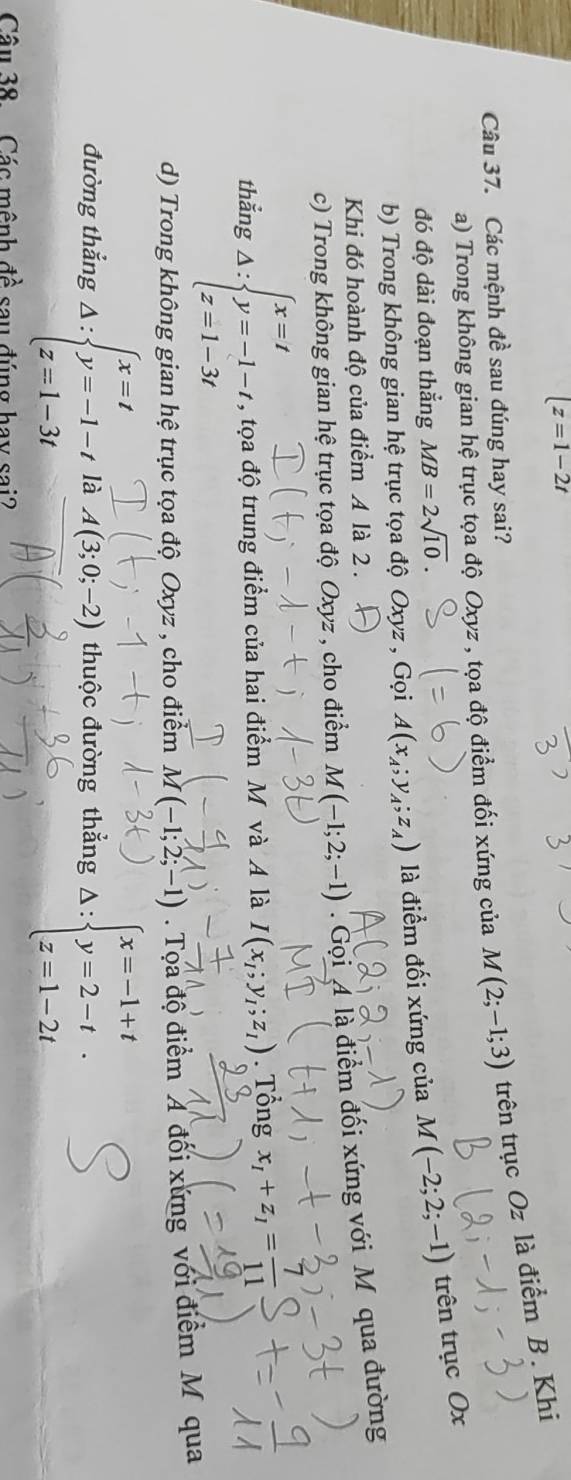 {z=1-2t
3
3
Câu 37. Các mệnh đề sau đúng hay sai?
a) Trong không gian hệ trục tọa độ Oxyz, tọa độ điểm đối xứng của M(2;-1;3) trên trục Oz là điểm B. Khi
đó độ dài đoạn thẳng MB=2√10. S (=6) B(2;-1;-3)
b) Trong không gian hệ trục tọa độ Oxyz, Gọi A(x_A;y_A;z_A) là điểm đối xứng của M(-2;2;-1) trên trục Ox
Khi đó hoành độ của điểm A là 2. Đ A(2;2;-1)
c) Trong không gian hệ trục tọa độ Oxyz, cho điểm M(-1;2;-1). Gọi A là điểm đối xứng với M qua đường
thẳng Δ:{x=t, y=-1-t, z=1-3t, tọa độ trung điểm của hai điểm M và A là I(x_I;y_I;z_I). Tổng x_I+z_I=4/11 S t=-9/11
I(t;-1-t;1-3t) MI(t+1;-t-3;-3t)
I(-9/11;-7/11;23/11) (=19/11)
d) Trong không gian hệ trục tọa độ Oxyz, cho điểm M(-1;2;-1). Tọa độ điểm A đối xứng với điểm M qua
đường thẳng Δ:{x=t, y=-1-t, z=1-3t là A(3;0;-2) thuộc đường thẳng Δ:{x=-1+t, y=2-t, z=1-2t. S
I(t;-1-t;1-3t)
Câu 38. Các mệnh đề sau đúng hay sai?